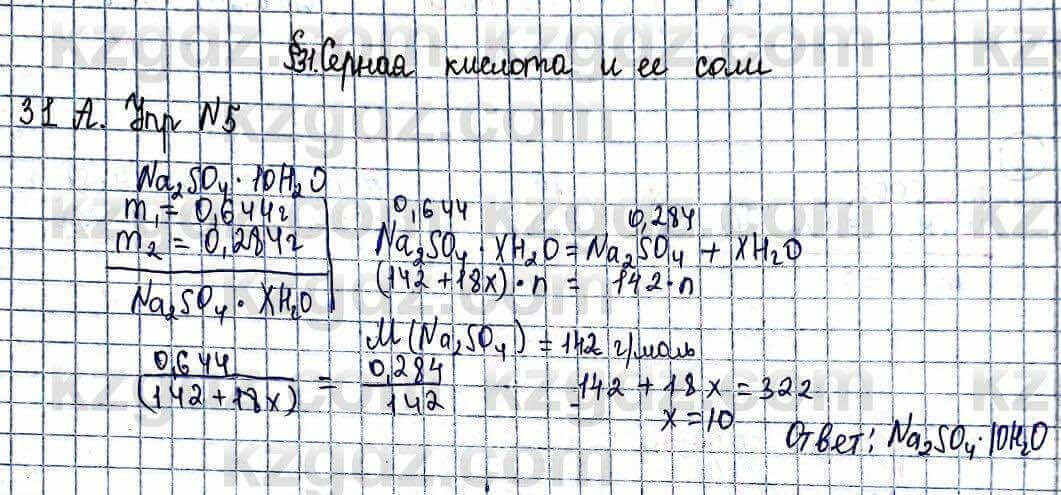 §31. Серная кислота и ее соли
31 А. Упр N5
Na₂SO₄ · 10H₂O
m₁ = 0,644г
m₂ = 0,284г
Na₂SO₄ · XH₂O
0,644 0,284
Na₂SO₄ · XH₂O = Na₂SO₄ + XH₂O
(142 + 18x) · n = 142 · n
M(Na₂SO₄) = 142 г/моль
0,644 / (142 + 18x) = 0,284 / 142
142 + 18x = 322
x = 10
Ответ: Na₂SO₄ · 10H₂O
kzgdz.com